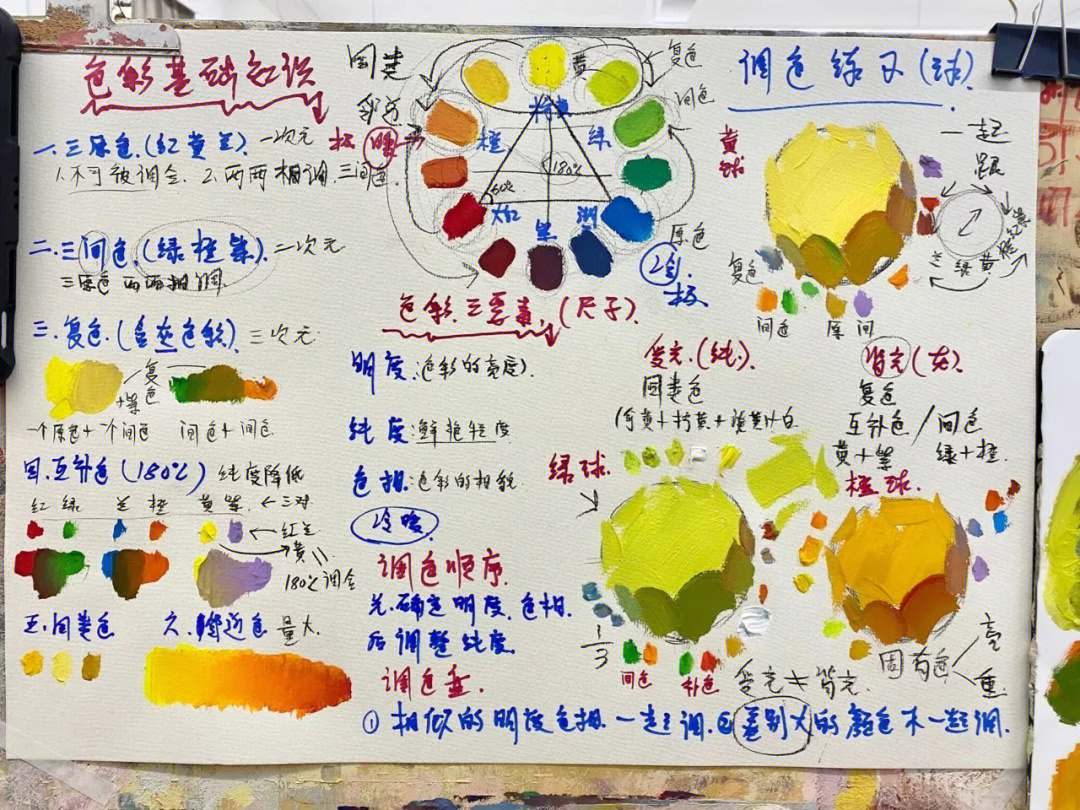 色彩基础知识
一.三原色.(红黄兰).一次元
1.不可被调合. 2.两两相调.三间色.
二.三间色.(绿橙紫).二次元
三原色两两相调.
三.复色.(含灰色彩).三次元
复色
+紫
一个原色+一个间色 间色+间色
四.互补色(180%) 纯度降低
红 绿 兰 橙 黄 紫. ←三对
←红兰
黄
180%调合
五.同类色 六.邻近色 量大.
同类
黄
复色
间色
极
暖
橙
柠黄
绿
60%
180%
大红
湖
紫
原色
冷.
极
色彩三要素.(尺子).
明度.(色彩的亮度).
纯度:鲜艳程度
色相:色彩的相貌
冷暖.
调色顺序.
先.确定明度.色相.
后调整纯度.
调色盘.
①相似的明度色相.一起调.②差别大的颜色不一起调.
调色练习(球).
黄球
一起
跟
兰绿黄
复色
间色
原 间
受光.(纯).
同类色
背光(灰)
复色
互补色/间色
黄+紫 绿+橙.
绿球.
橙球.
1/3
间色
补色
受光≠背光.
固有色
亮
重